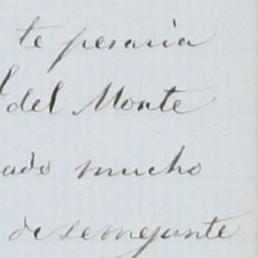 te pesaria
del Monte
ado mucho
de semejante